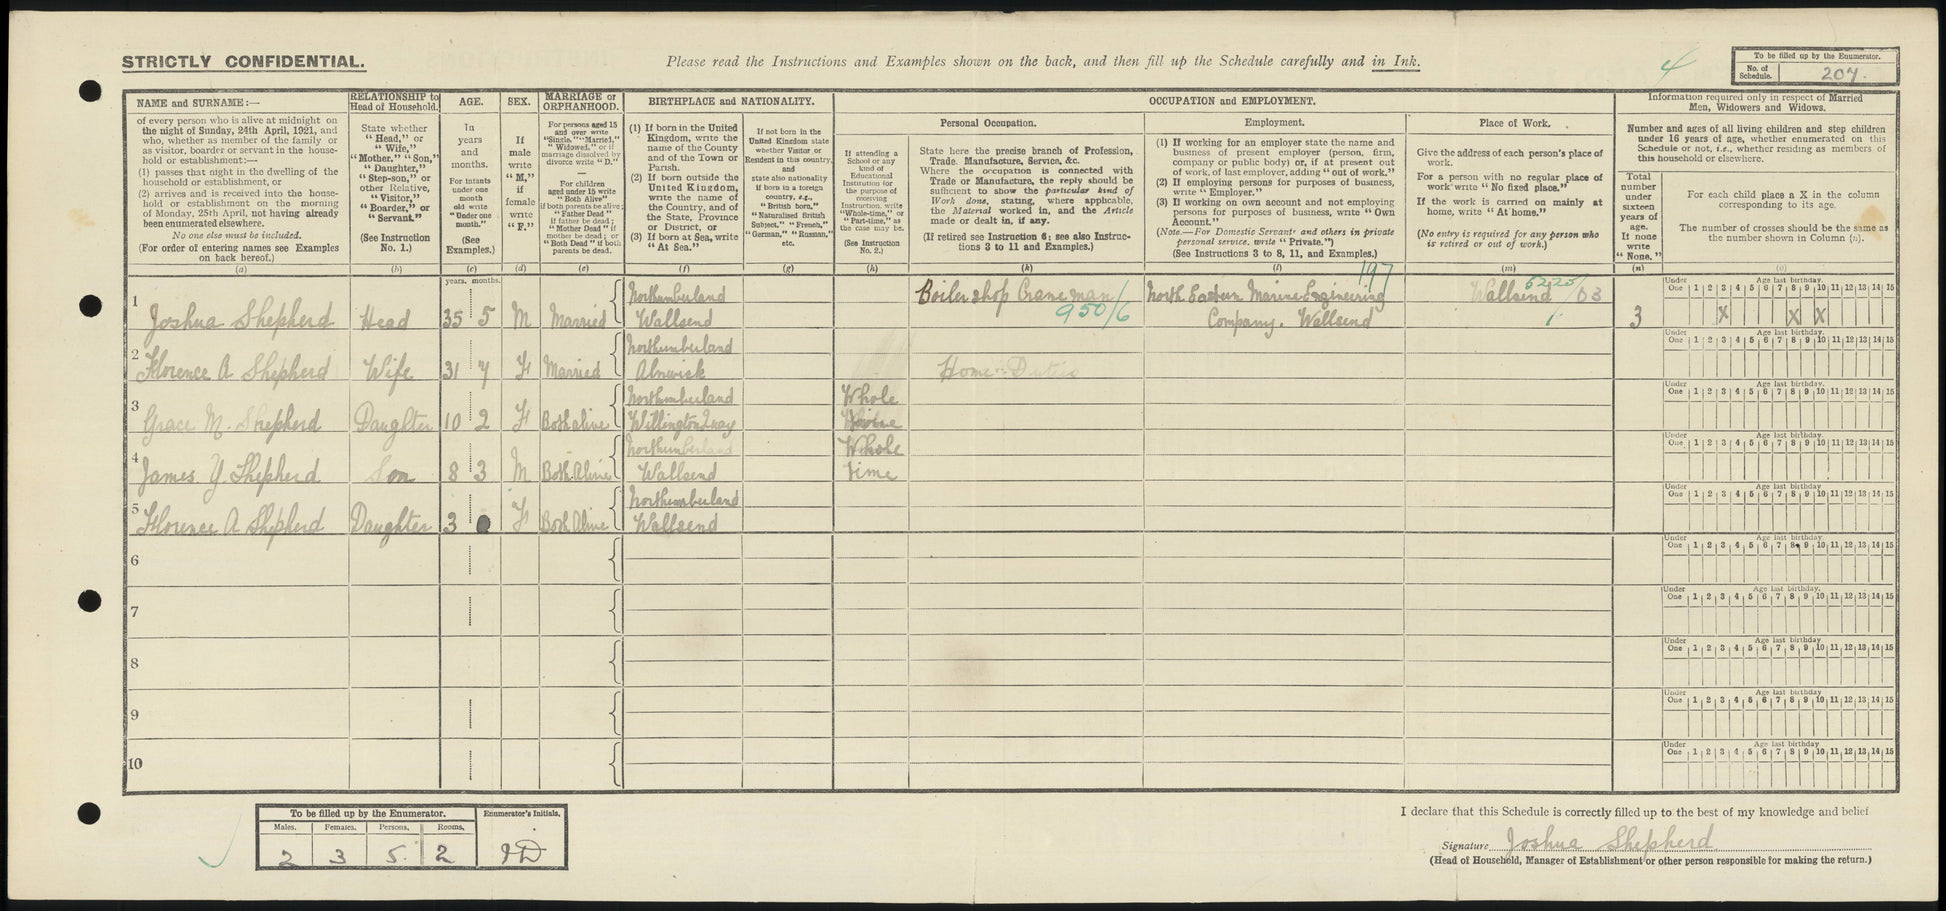 STRICTLY CONFIDENTIAL.
Please read the Instructions and Examples shown on the back, and then fill up the Schedule carefully and in Ink.
4
To be filled up by the Enumerator.
No. of Schedule. 207.
NAME and SURNAME:—
of every person who is alive at midnight on
the night of Sunday, 24th April, 1921, and
who, whether as member of the family or
as visitor, boarder or servant in the house-
hold or establishment:—
(1) passes that night in the dwelling of the
household or establishment, or
(2) arrives and is received into the house-
hold or establishment on the morning
of Monday, 25th April, not having already
been enumerated elsewhere.
No one else must be included.
(For order of entering names see Examples
on back hereof.)
(a)
RELATIONSHIP to
Head of Household.
State whether
"Head," or
"Wife,"
"Mother," "Son,"
"Daughter,"
"Step-son," or
other Relative,
"Visitor,"
"Boarder," or
"Servant."
(See Instruction
No. 1.)
(b)
AGE.
In
years
and
months.
For infants
under one
month
old write
"Under one
month."
(See
Examples.)
(c)
SEX.
If
male
write
"M,"
if
female
write
"F."
(d)
MARRIAGE or
ORPHANHOOD.
For persons aged 15
and over write
"Single," "Married,"
"Widowed," or if
marriage dissolved by
divorce write "D."
For children
aged under 15 write
"Both Alive"
if both parents be alive;
"Father Dead"
if father be dead;
"Mother Dead" if
mother be dead; or
"Both Dead" if both
parents be dead.
(e)
BIRTHPLACE and NATIONALITY.
(1) If born in the United
Kingdom, write the
name of the County
and of the Town or
Parish.
(2) If born outside the
United Kingdom,
write the name of
the Country, and of
the State, Province
or District, or
(3) If born at Sea, write
"At Sea."
(f)
If not born in the
United Kingdom state
whether Visitor or
Resident in this country,
and
state also nationality
if born in a foreign
country, e.g.,
"British born,"
"Naturalised British
Subject," "French,"
"German," "Russian,"
etc.
(g)
OCCUPATION and EMPLOYMENT.
Personal Occupation.
If attending a
School or any
kind of
Educational
Institution for
the purpose of
receiving
Instruction, write
"Whole-time," or
"Part-time," as
the case may be.
(See Instruction
No. 2.)
(h)
State here the precise branch of Profession,
Trade, Manufacture, Service, &c.
Where the occupation is connected with
Trade or Manufacture, the reply should be
sufficient to show the particular kind of
Work done, stating, where applicable,
the Material worked in, and the Article
made or dealt in, if any.
(If retired see Instruction 6; see also Instruc-
tions 3 to 11 and Examples.)
(k)
Employment.
(1) If working for an employer state the name and
business of present employer (person, firm,
company or public body) or, if at present out
of work, of last employer, adding "out of work."
(2) If employing persons for purposes of business,
write "Employer."
(3) If working on own account and not employing
persons for purposes of business, write "Own
Account."
(Note.—For Domestic Servants and others in private
personal service, write "Private.")
(See Instructions 3 to 8, 11, and Examples.)
(l)
Place of Work.
Give the address of each person's place of
work.
For a person with no regular place of
work write "No fixed place."
If the work is carried on mainly at
home, write "At home."
(No entry is required for any person who
is retired or out of work.)
(m)
Information required only in respect of Married
Men, Widowers and Widows.
Number and ages of all living children and step children
under 16 years of age, whether enumerated on this
Schedule or not, i.e., whether residing as members of
this household or elsewhere.
Total
number
under
sixteen
years of
age.
If none
write
"None."
(n)
For each child place a X in the column
corresponding to its age.
The number of crosses should be the same as
the number shown in Column (n).
(o)
years. months.
1 Joshua Shepherd Head 35 5 M Married Northumberland Wallsend Boiler shop Crane man 950/6 North Eastern Marine Engineering Company. Wallsend 197 Wallsend 3 X X X
2 Florence A Shepherd Wife 31 7 F Married Northumberland Alnwick Home Duties
3 Grace M. Shepherd Daughter 10 2 F Both alive Northumberland Willington Quay Whole
4 James Y Shepherd Son 8 3 M Both Alive Northumberland Wallsend Whole time
5 Florence A Shepherd Daughter 3 F Both Alive Northumberland Wallsend
6
7
8
9
10
Under One 1 2 3 4 5 6 7 8 9 10 11 12 13 14 15
Age last birthday.
Under One 1 2 3 4 5 6 7 8 9 10 11 12 13 14 15
Age last birthday.
Under One 1 2 3 4 5 6 7 8 9 10 11 12 13 14 15
Age last birthday.
Under One 1 2 3 4 5 6 7 8 9 10 11 12 13 14 15
Age last birthday.
Under One 1 2 3 4 5 6 7 8 9 10 11 12 13 14 15
Age last birthday.
Under One 1 2 3 4 5 6 7 8 9 10 11 12 13 14 15
Age last birthday.
Under One 1 2 3 4 5 6 7 8 9 10 11 12 13 14 15
Age last birthday.
Under One 1 2 3 4 5 6 7 8 9 10 11 12 13 14 15
Age last birthday.
Under One 1 2 3 4 5 6 7 8 9 10 11 12 13 14 15
Age last birthday.
Under One 1 2 3 4 5 6 7 8 9 10 11 12 13 14 15
Age last birthday.
To be filled up by the Enumerator.
Males. Females. Persons. Rooms.
2 3 5. 2
Enumerator's Initials.
I declare that this Schedule is correctly filled up to the best of my knowledge and belief
Signature Joshua Shepherd
(Head of Household, Manager of Establishment or other person responsible for making the return.)